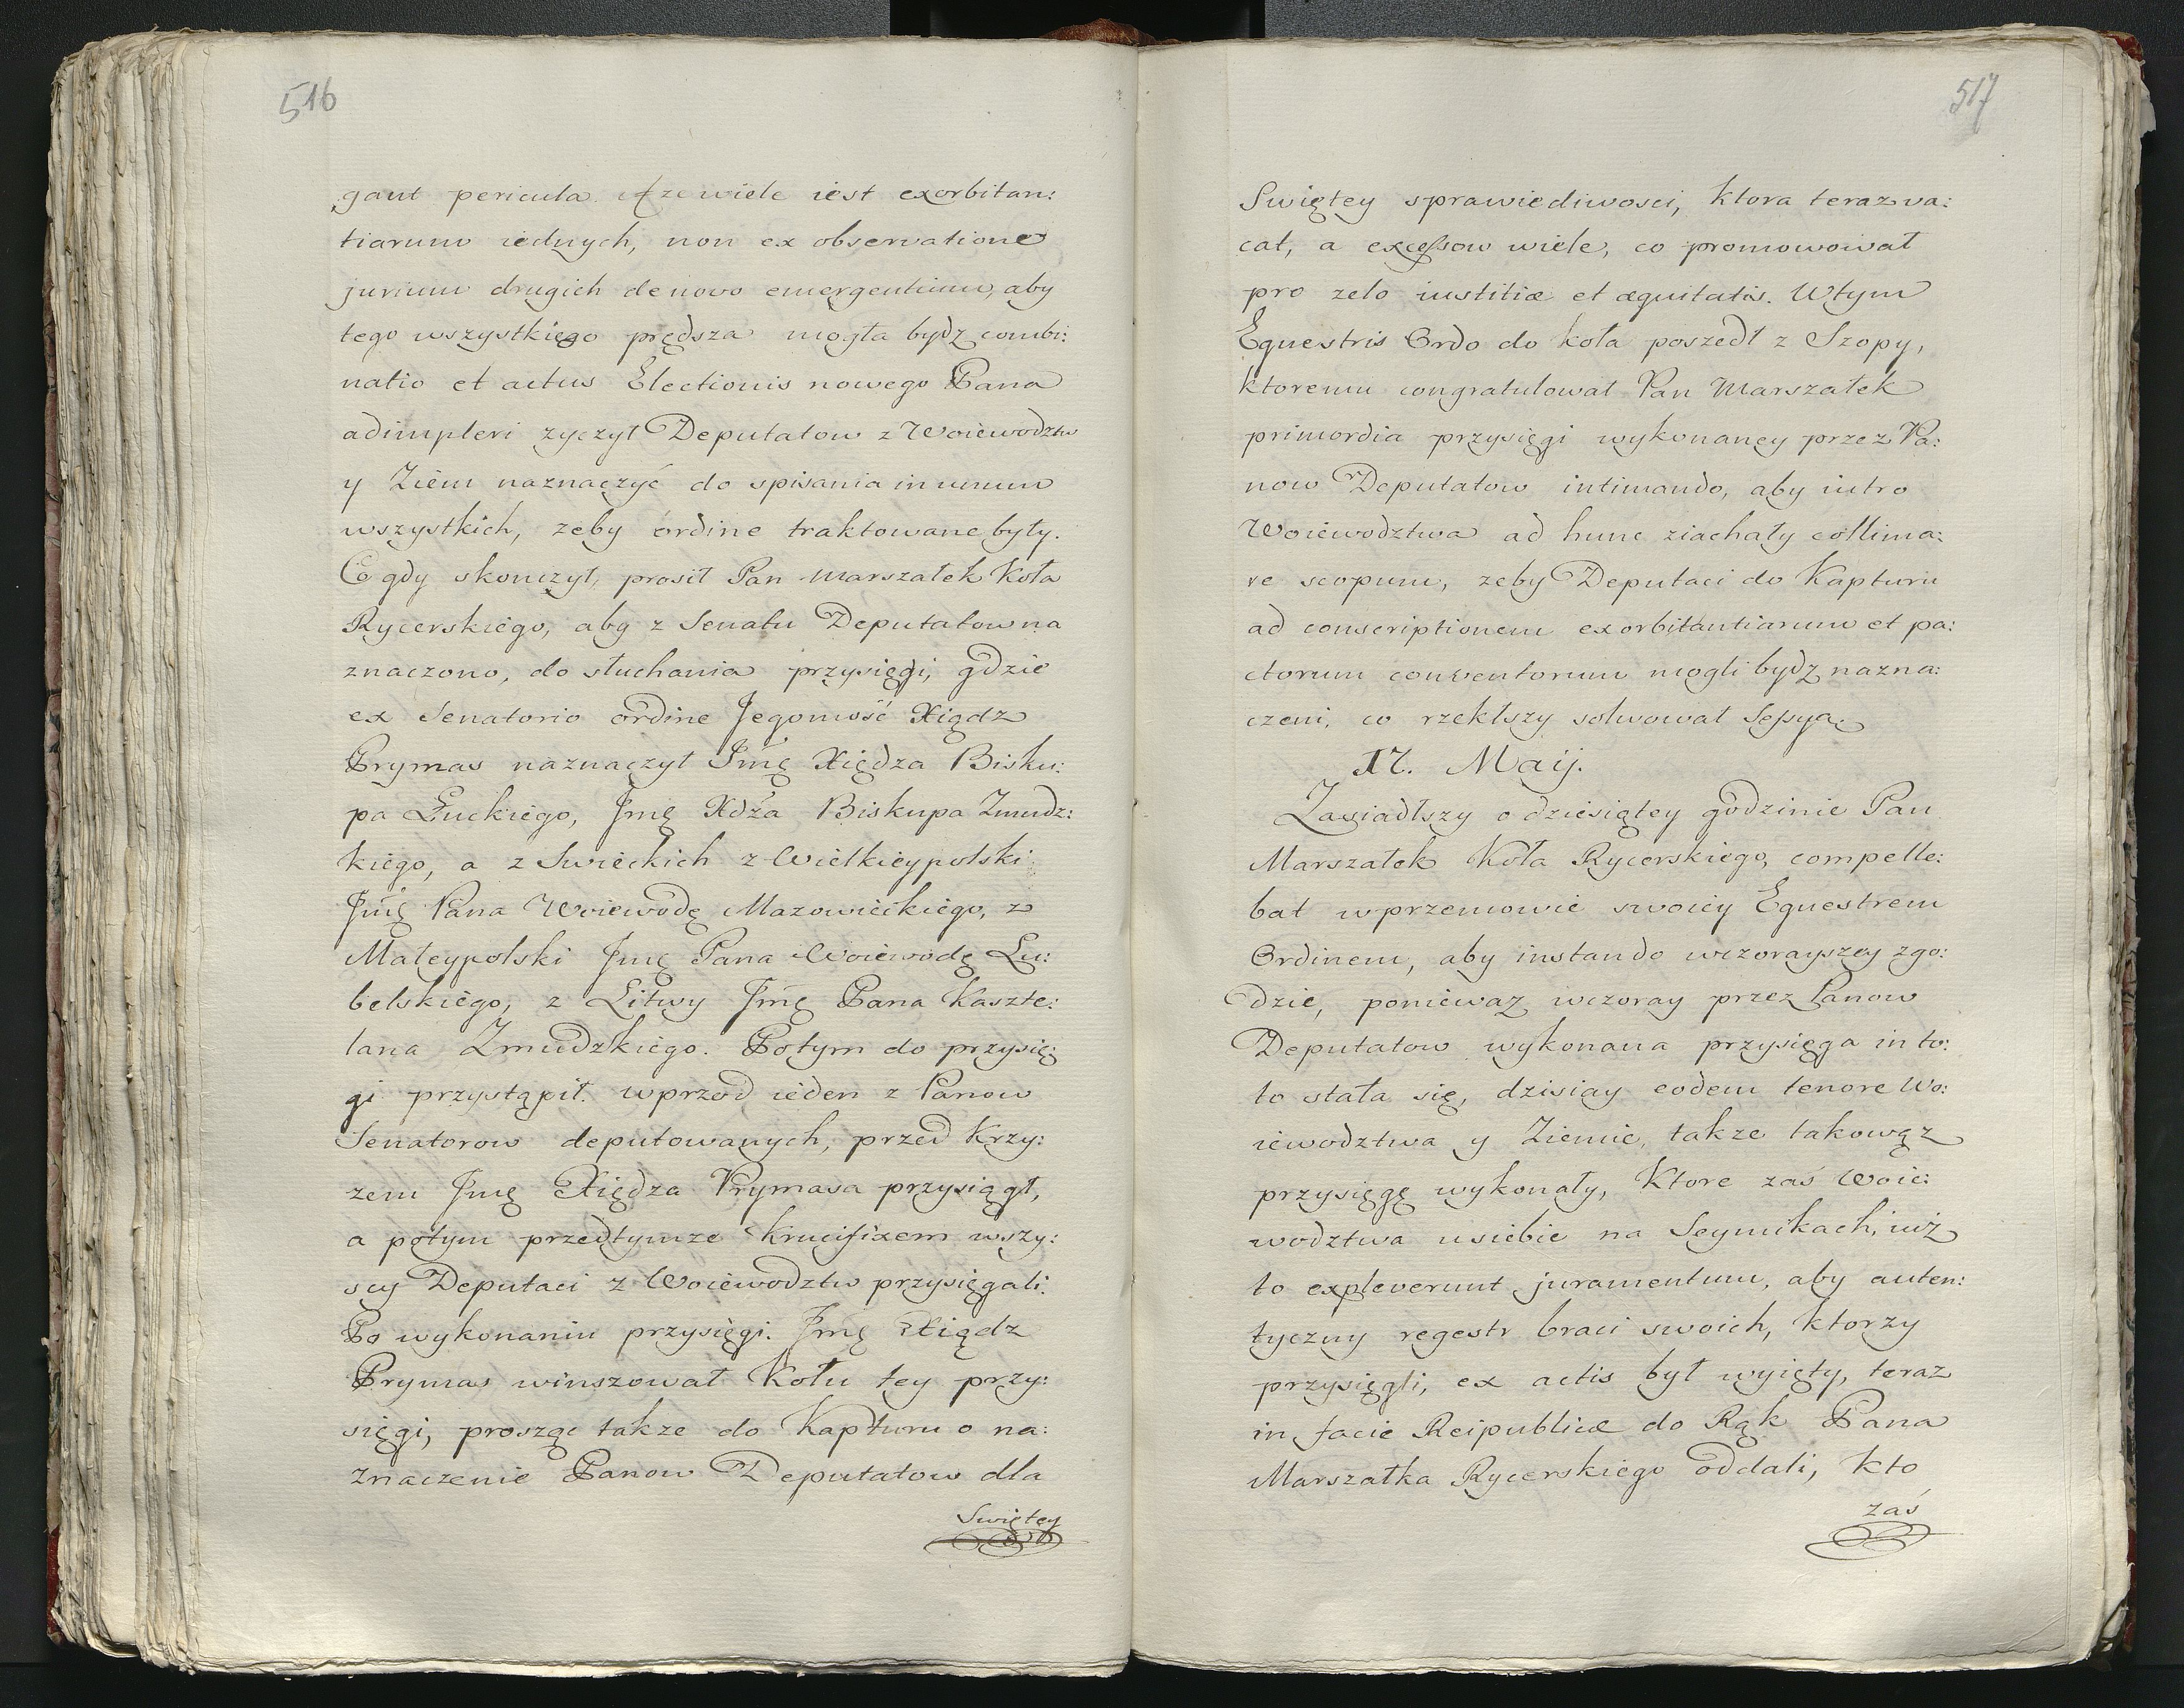 516
gant pericula. A ze wiele iest exorbitan:
tiarum iednych, non ex observatione
jurium drugich denovo emergentium, aby
tego wszystkiego prędsza mogła bydz combi:
natio et actus Electionis nowego Pana
adimpleri zyczył Deputatow z Woiewodztw
y Ziem naznaczyć do spisania in unum
wszystkich, zeby ordine traktowane były.
Co gdy skonczył, prosił Pan Marszałek Koła
Rycerskiego, aby z Senatu Deputatow na
znaczono, do słuchania przysięgi, gdzie
ex Senatorio ordine Jegomość Xiądz
Prymas naznaczył Jmę Xiędza Bisku:
pa Łuckiego, Jmę Xdza Biskupa Zmudz:
kiego, a z Swieckich z Wielkieypolski
Jmę Pana Woiewodę Mazowieckiego, z
Małeypolski Jmę Pana Woiewodę Lu:
belskiego, z Litwy Jmę Pana Kaszte:
lana Zmudzkiego. Potym do przysię:
gi przystąpił wprzod ieden z Panow
Senatorow deputowanych, przed Krzy:
zem Jmę Xiędza Prymasa przysiągł,
a potym przedtymze Krucifixem wszy:
scy Deputaci z Woiewodztw przysięgali.
Po wykonaniu przysięgi. Jmę Xiądz
Prymas winszował Kołu tey przy:
sięgi, prosząc takze do Kapturu o na:
znaczenie Panow Deputatow dla
Swiętey
517
Swiętey sprawiedliwosci, ktora teraz va:
cat, a excessow wiele, co promowował
pro zelo iustitiæ et æquitatis. Wtym
Equestris Ordo do koła poszedł z Szopy,
ktoremu congratulował Pan Marszałek
primordia przysięgi wykonaney przez Pa:
now Deputatow intimando, aby iutro
Woiewodztwa ad hunc ziachały collima:
re scopum, zeby Deputaci do Kapturu
ad conscriptionem exorbitantiarum et pa:
ctorum conventorum mogli bydz nazna:
czeni, co rzekłszy solwował Sessyą.
17. Maij.
Zasiadłszy o dziesiątey godzinie Pan
Marszałek Koła Rycerskiego, compelle:
bat w przemowie swoiey Equestrem
Ordinem, aby instando wczorayszey zgo:
dzie, poniewaz wczoray przez Panow
Deputatow wykonana przysięga in to:
to stała się, dzisiay eodem tenore Wo:
iewodztwa y Ziemie, takze takowąz
przysięgę wykonały, Ktore zaś Woie:
wodztwa u siebie na Seymikach, iuż
to expleverunt juramentum, aby auten:
tyczny regestr braci swoich, ktorzy
przysięgli, ex actis był wyięty, teraz
in facie Reipublicæ do Rąk Pana
Marszałka Rycerskiego oddali, kto
zaś